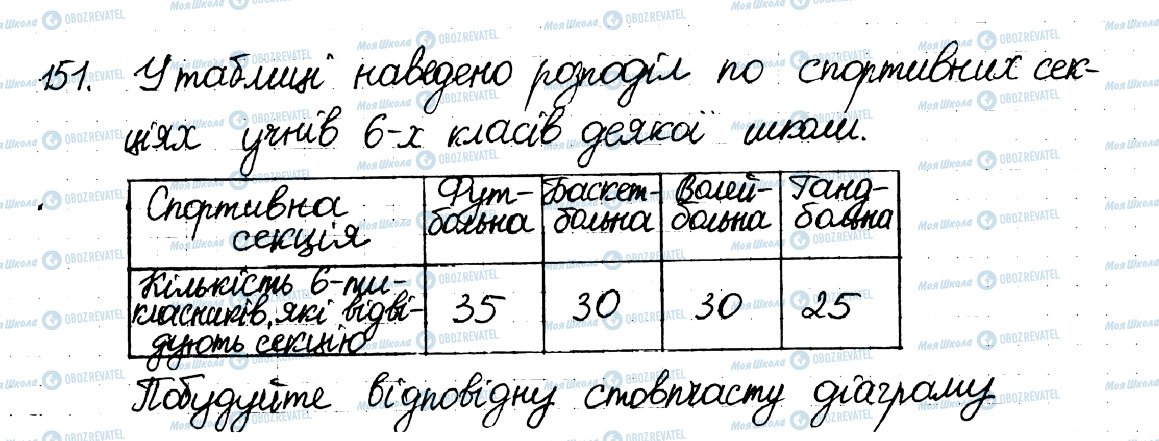 151. У таблиці наведено розподіл по спортивних сек-
ціях учнів 6-х класів деякої школи.
Спортивна секція | Фут-больна | Баскет-больна | Волей-больна | Ганд-больна
Кількість 6-ти-класників, які відві-дують секцію | 35 | 30 | 30 | 25
Побудуйте відповідну стовпчасту діаграму
Моя Школа OBOZREVATEL